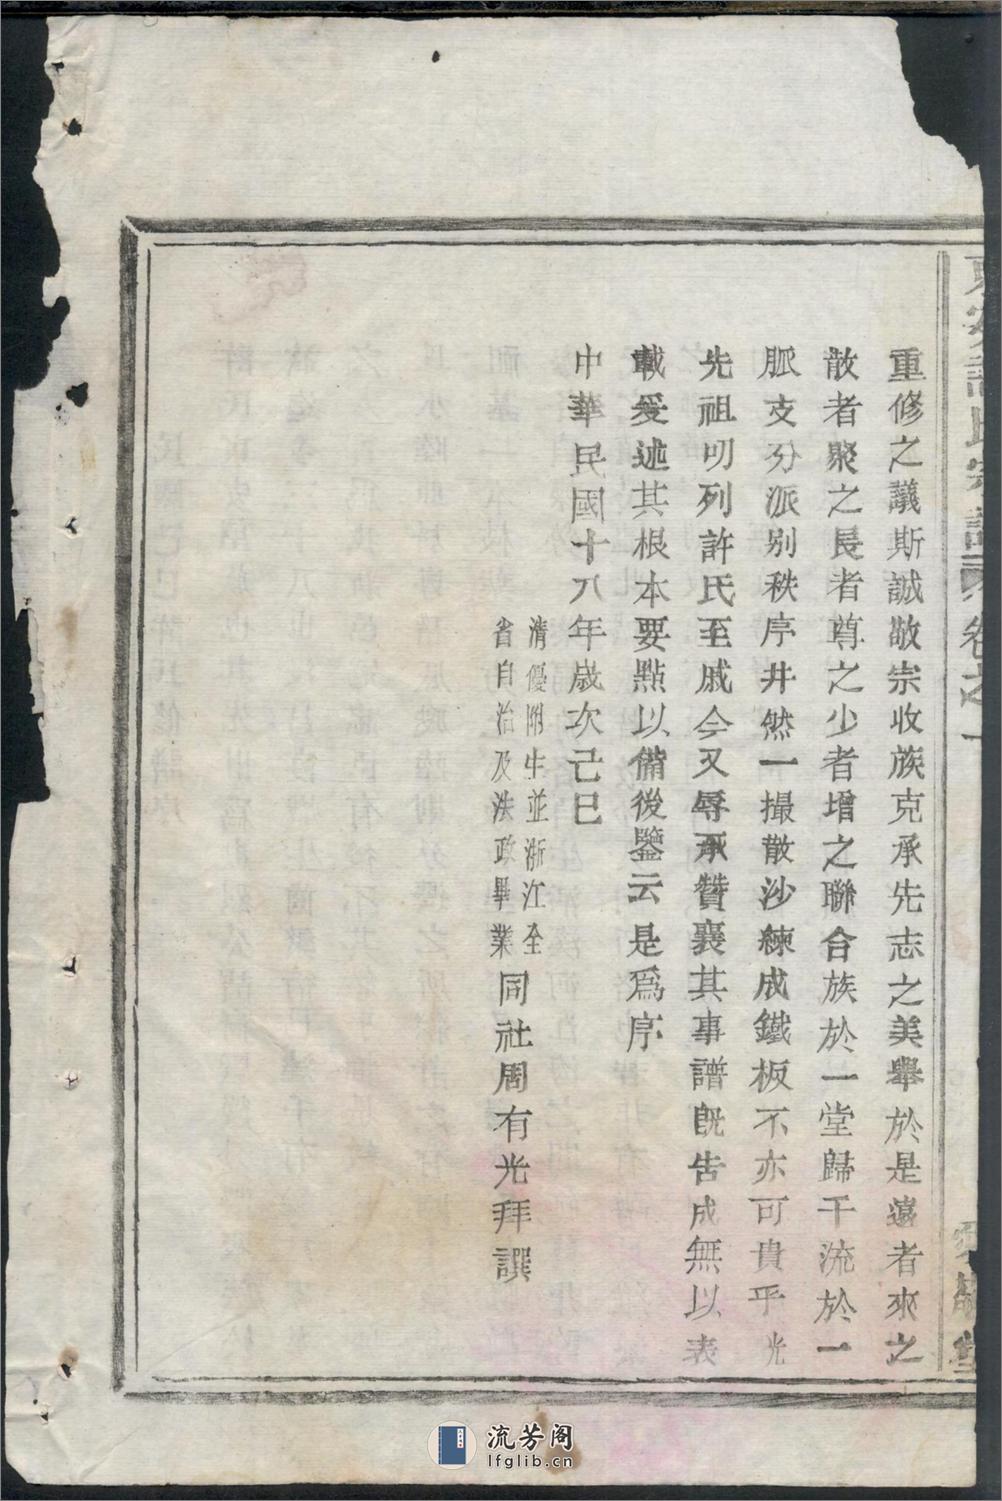 重修之議斯誠敬宗收族克承先志之美舉於是遠者來之
散者聚之長者尊之少者增之聯合族於一堂歸千流於一
脈支分派别秩序井然一撮散沙練成鐵板不亦可貴乎光
先祖叨列許氏至戚今又辱承贊襄其事譜旣告成無以表
載爰述其根本要點以備後鑒云是爲序
中華民國十八年歲次己巳
清優附生並浙江全
省自治及法政畢業
同社周有光拜譔
氏宗譜 卷之一
流芳阁
lfglib.cn